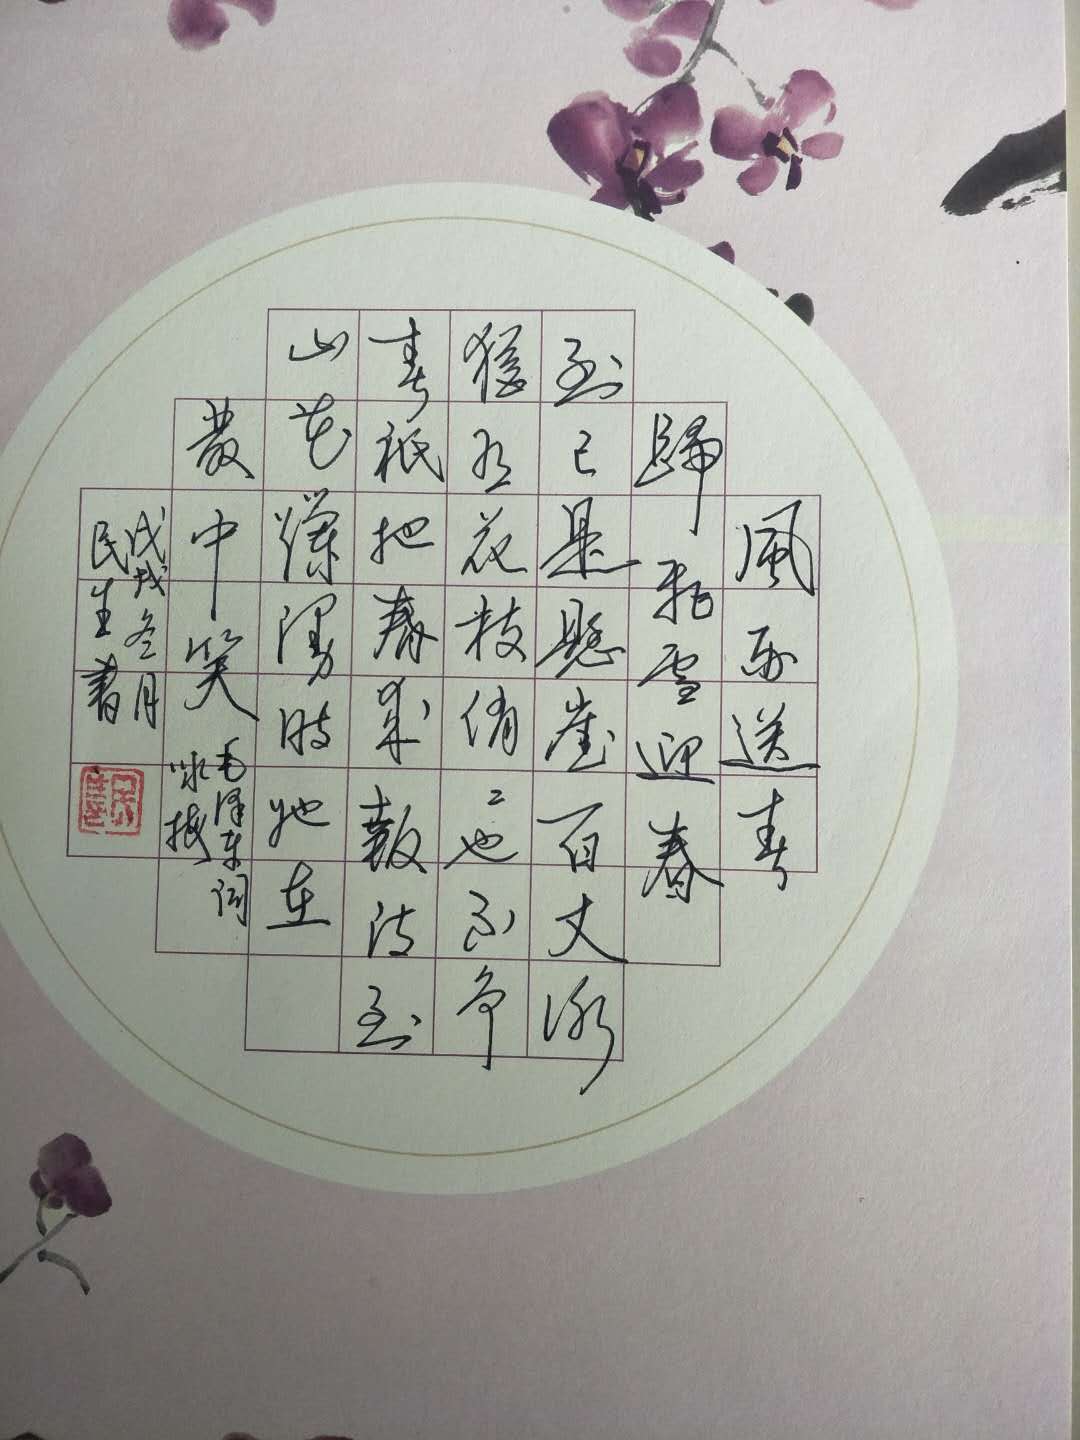 風雨送春
歸飛雪迎春
到已是懸崖百丈冰
猶有花枝俏〻也不爭
春祇把春來報待到
山花爛漫時她在
叢中笑
毛泽东词
咏梅
戊戌冬月
民生書